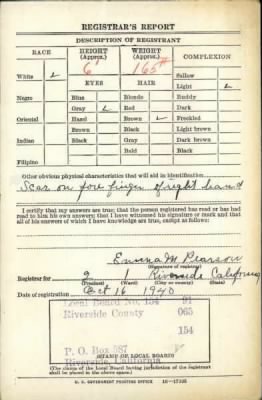 REGISTRAR'S REPORT
DESCRIPTION OF REGISTRANT
RACE HEIGHT (Approx.) WEIGHT (Approx.) COMPLEXION
6' 165#
White ✓ EYES HAIR Sallow
Light ✓
Negro Blue Blonde Ruddy
Gray ✓ Red Dark
Oriental Hazel Brown ✓ Freckled
Brown Black Light brown
Indian Black Gray Dark brown
Bald Black
Filipino
Other obvious physical characteristics that will aid in identification
Scar on fore finger of right hand
I certify that my answers are true; that the person registered has read or has had
read to him his own answers; that I have witnessed his signature or mark and that
all of his answers of which I have knowledge are true, except as follows:
Emma M Pearson
(Signature of registrar)
Registrar for 2 1 Riverside California
(Precinct) (Ward) (City or county) (State)
Date of registration Oct 16 1940
Local Board No. 154 91
Riverside County 065
154
P. O. Box 587
Riverside, California
(STAMP OF LOCAL BOARD)
(The stamp of the Local Board having jurisdiction of the registrant
shall be placed in the above space.)
U. S. GOVERNMENT PRINTING OFFICE 16—17105